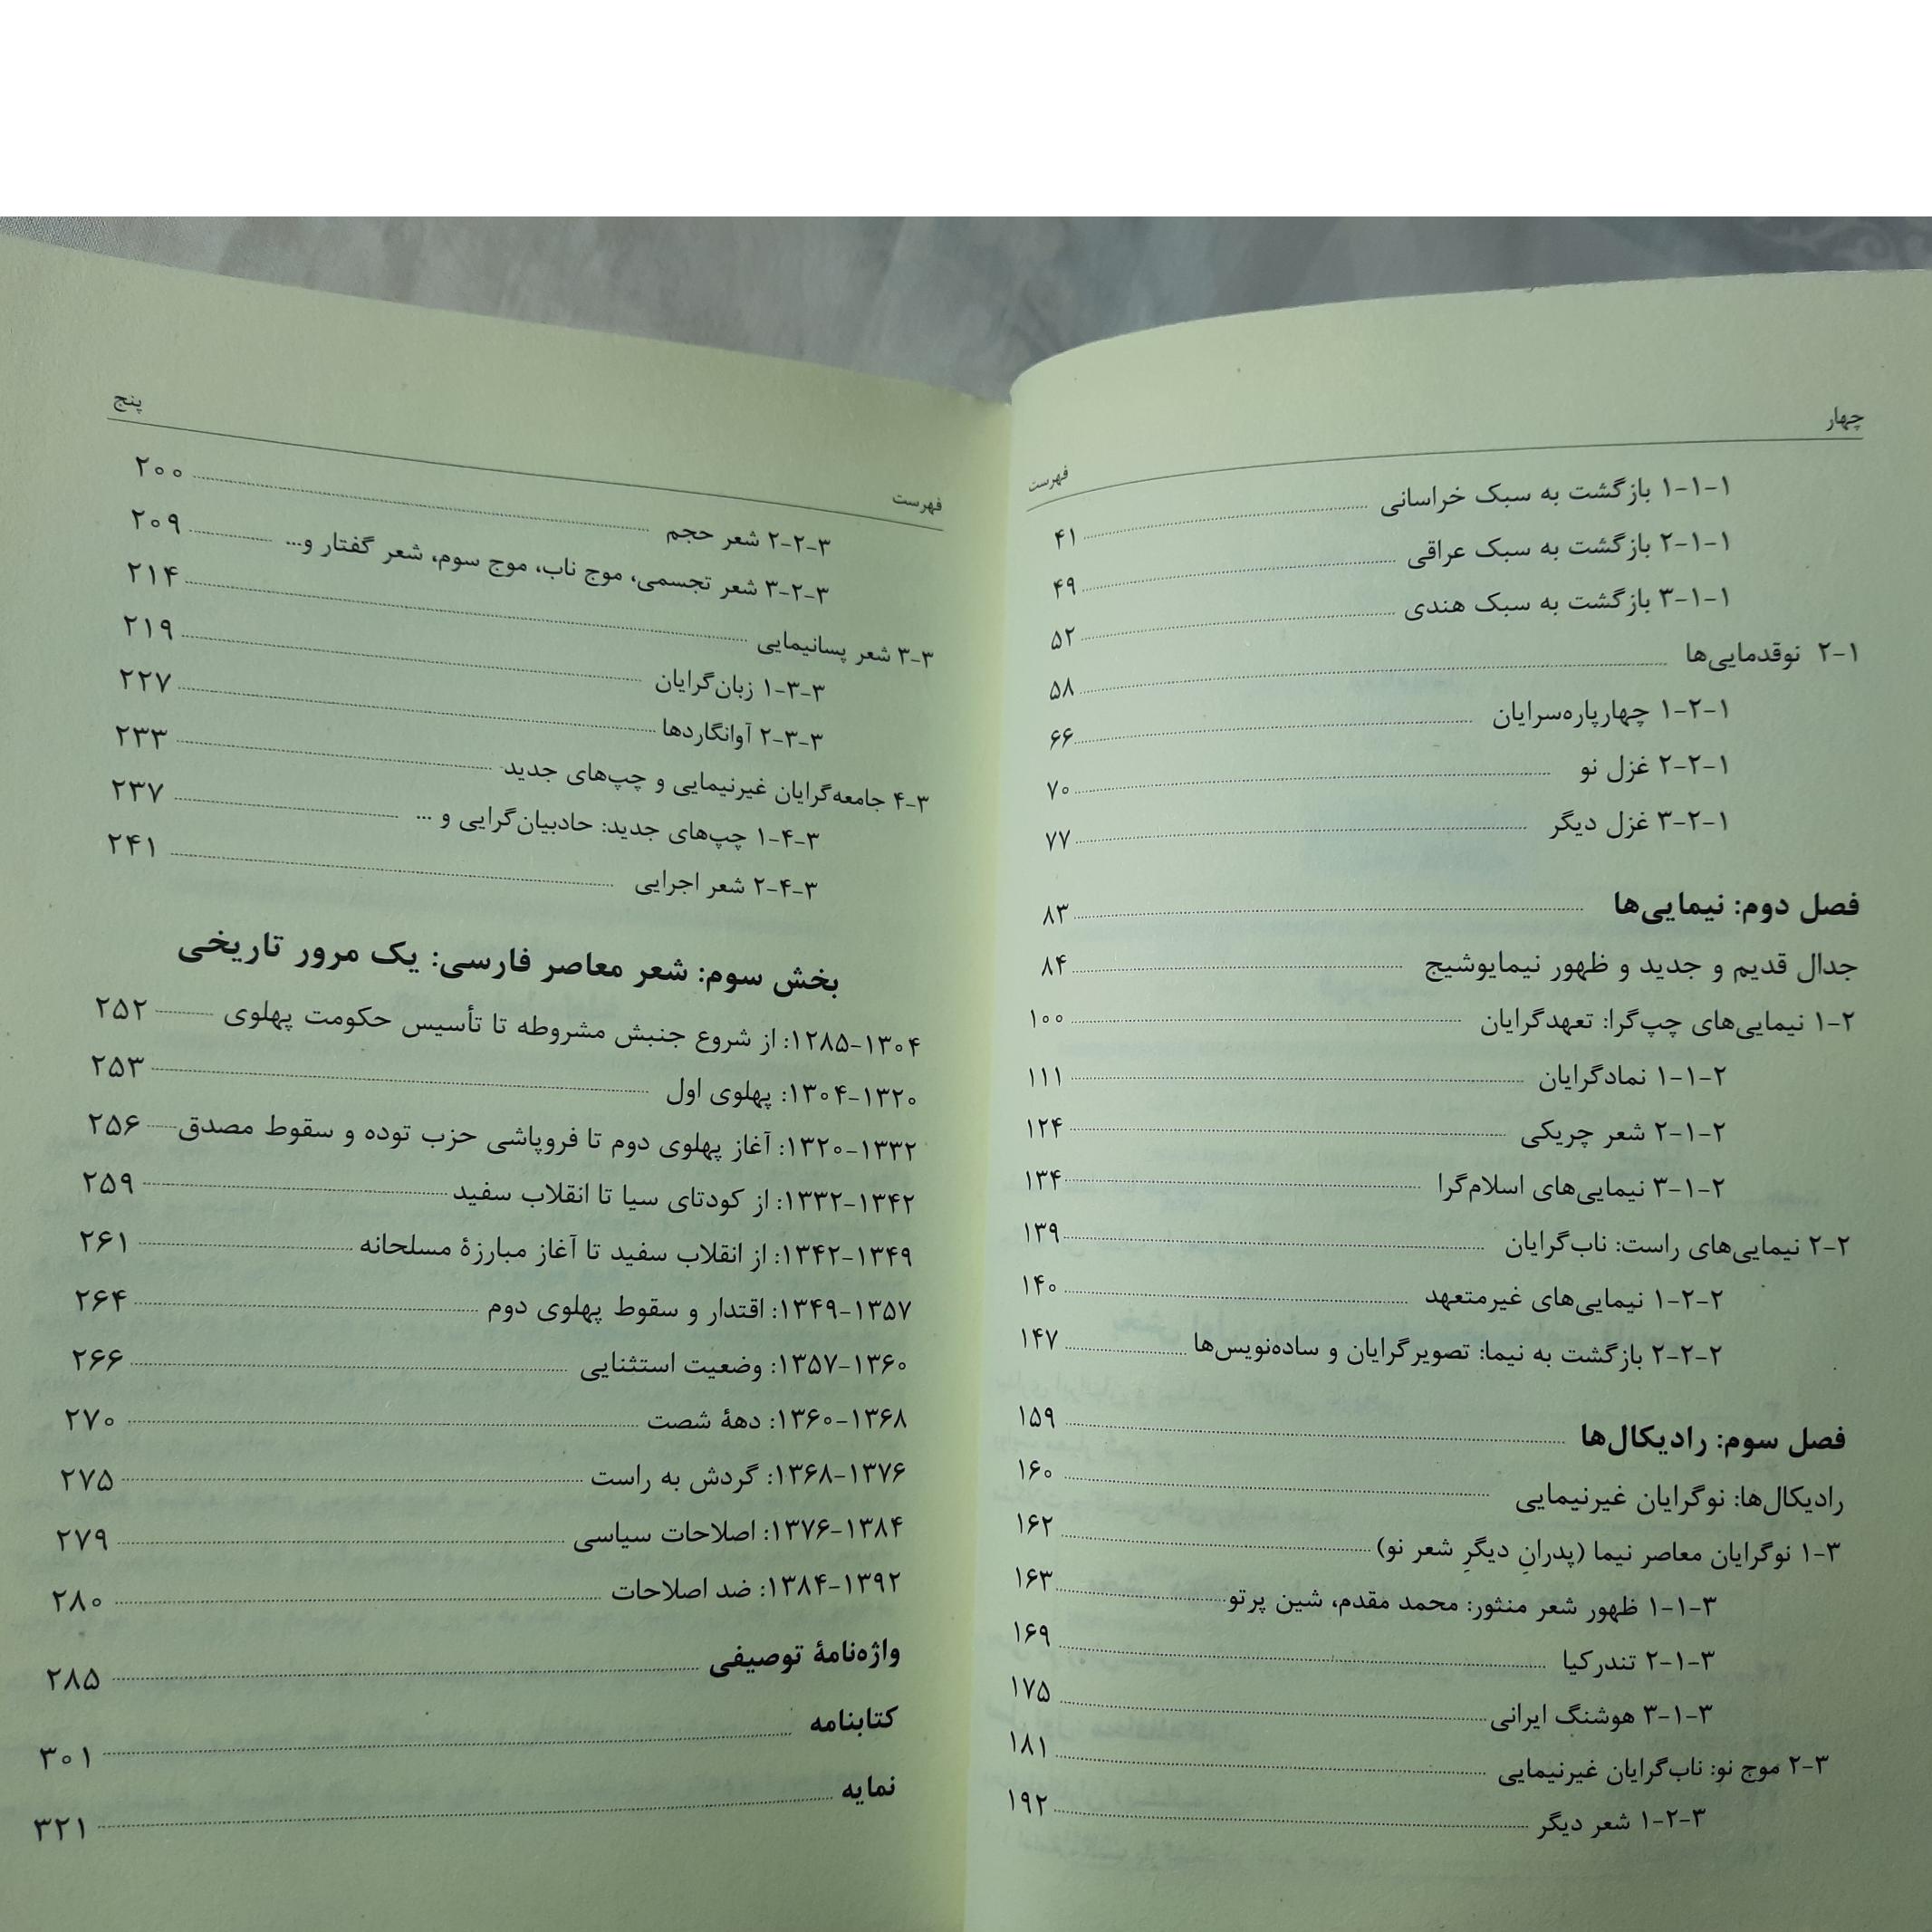 چهار
فهرست
۱-۱-۱ بازگشت به سبک خراسانی ۴۱
۲-۱-۱ بازگشت به سبک عراقی ۴۹
۳-۱-۱ بازگشت به سبک هندی ۵۲
۲-۱ نوقدمایی‌ها ۵۸
۱-۲-۱ چهارپاره‌سرایان ۶۶
۲-۲-۱ غزل نو ۷۰
۳-۲-۱ غزل دیگر ۷۷
فصل دوم: نیمایی‌ها ۸۳
جدال قدیم و جدید و ظهور نیمایوشیج ۸۴
۱-۲ نیمایی‌های چپ‌گرا: تعهدگرایان ۱۰۰
۱-۱-۲ نمادگرایان ۱۱۱
۲-۱-۲ شعر چریکی ۱۲۴
۳-۱-۲ نیمایی‌های اسلام‌گرا ۱۳۴
۲-۲ نیمایی‌های راست: ناب‌گرایان ۱۳۹
۱-۲-۲ نیمایی‌های غیرمتعهد ۱۴۰
۲-۲-۲ بازگشت به نیما: تصویرگرایان و ساده‌نویس‌ها ۱۴۷
فصل سوم: رادیکال‌ها ۱۵۹
رادیکال‌ها: نوگرایان غیرنیمایی ۱۶۰
۱-۳ نوگرایان معاصر نیما (پدرانِ دیگرِ شعر نو) ۱۶۲
۱-۱-۳ ظهور شعر منثور: محمد مقدم، شین پرتو ۱۶۳
۲-۱-۳ تندرکیا ۱۶۹
۳-۱-۳ هوشنگ ایرانی ۱۷۵
۲-۳ موج نو: ناب‌گرایان غیرنیمایی ۱۸۱
۱-۲-۳ شعر دیگر ۱۹۲
پنج
فهرست
۲-۲-۳ شعر حجم ۲۰۰
۳-۲-۳ شعر تجسمی، موج ناب، موج سوم، شعر گفتار و... ۲۰۹
۳-۳ شعر پسانیمایی ۲۱۴
۱-۳-۳ زبان‌گرایان ۲۱۹
۲-۳-۳ آوانگاردها ۲۲۷
۴-۳ جامعه‌گرایان غیرنیمایی و چپ‌های جدید ۲۳۳
۱-۴-۳ چپ‌های جدید: حادبیان‌گرایی و ... ۲۳۷
۲-۴-۳ شعر اجرایی ۲۴۱
بخش سوم: شعر معاصر فارسی: یک مرور تاریخی
۱۲۸۵-۱۳۰۴: از شروع جنبش مشروطه تا تأسیس حکومت پهلوی ۲۵۲
۱۳۰۴-۱۳۲۰: پهلوی اول ۲۵۳
۱۳۲۰-۱۳۳۲: آغاز پهلوی دوم تا فروپاشی حزب توده و سقوط مصدق ۲۵۶
۱۳۳۲-۱۳۴۲: از کودتای سیا تا انقلاب سفید ۲۵۹
۱۳۴۲-۱۳۴۹: از انقلاب سفید تا آغاز مبارزهٔ مسلحانه ۲۶۱
۱۳۴۹-۱۳۵۷: اقتدار و سقوط پهلوی دوم ۲۶۴
۱۳۵۷-۱۳۶۰: وضعیت استثنایی ۲۶۶
۱۳۶۰-۱۳۶۸: دههٔ شصت ۲۷۰
۱۳۶۸-۱۳۷۶: گردش به راست ۲۷۵
۱۳۷۶-۱۳۸۴: اصلاحات سیاسی ۲۷۹
۱۳۸۴-۱۳۹۲: ضد اصلاحات ۲۸۰
واژه‌نامهٔ توصیفی ۲۸۵
کتابنامه ۳۰۱
نمایه ۳۲۱